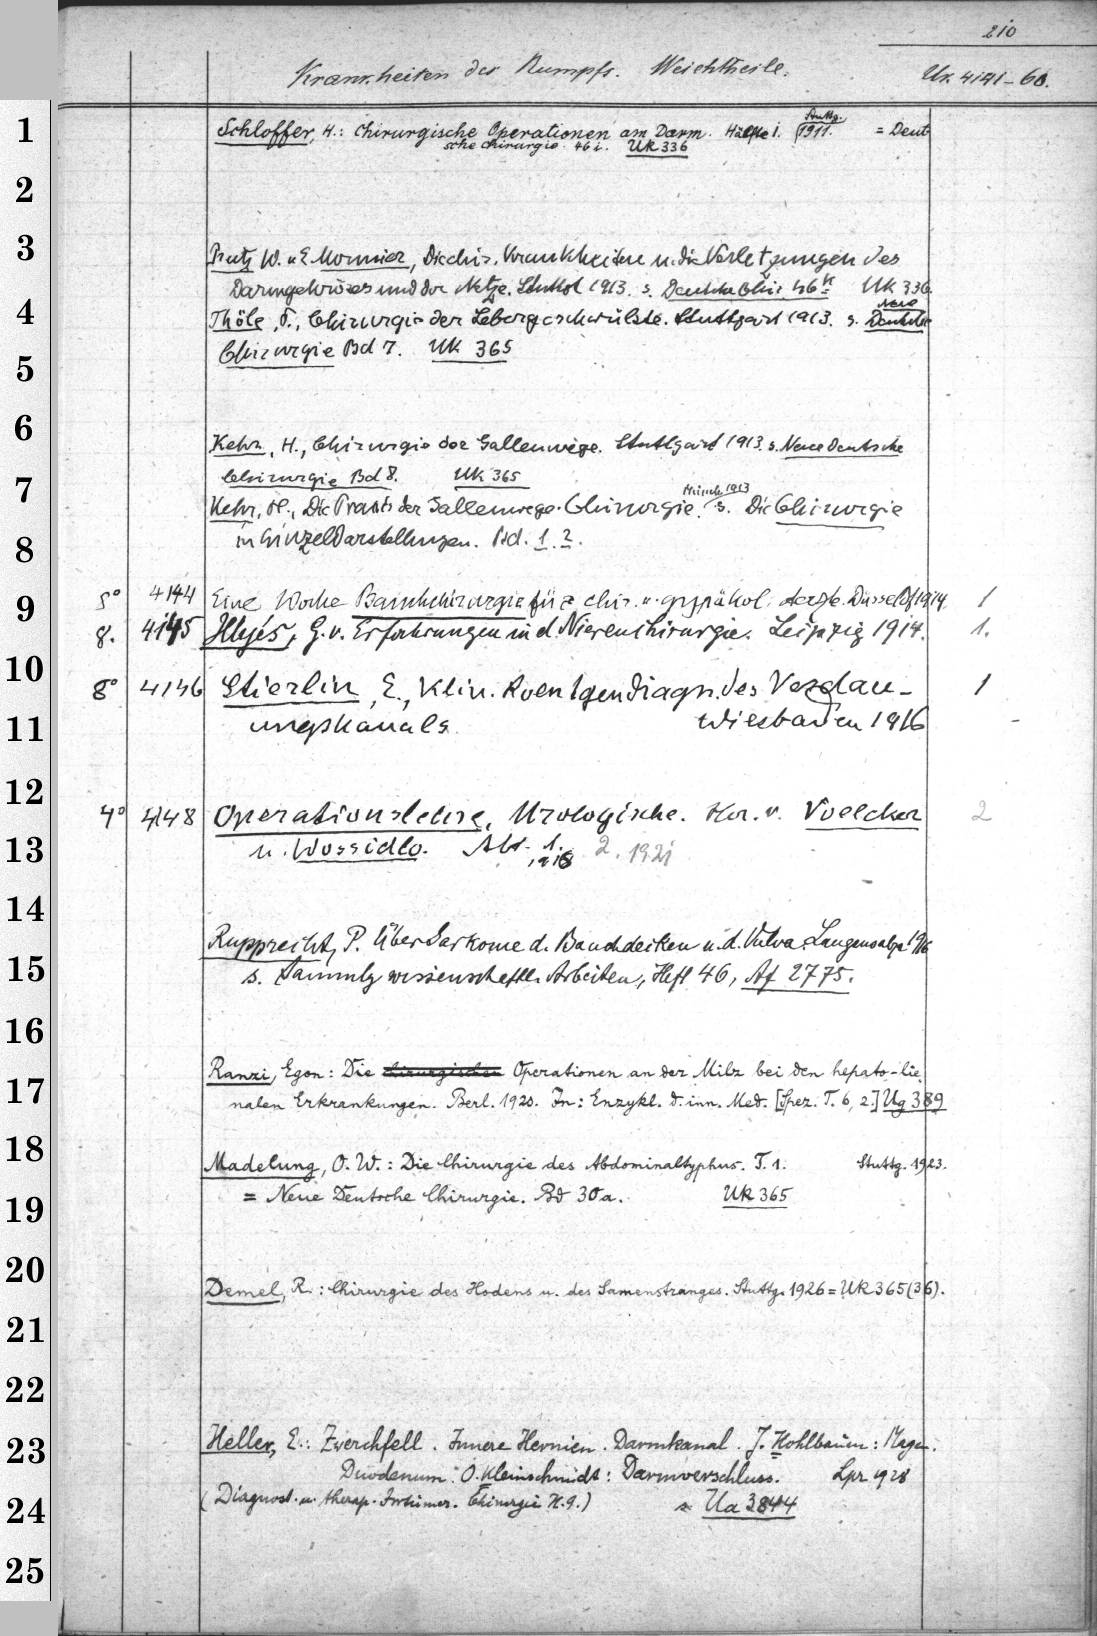 210
Krankheiten des Rumpfs. Weichtheile. Uk. 4141-60.
1 Schloffer, H.: Chirurgische Operationen am Darm. Hälfte 1. Stuttg. 1911. = Deut
sche Chirurgie 46 i. Uk 336
2
3 Prutz W. u E. Monnier, Die chir. Krankheiten u. die Verletzungen des
Darmgekröses und der Netze. Stuttgt 1913. s. Deutsche Chir. 46 k Uk 336.
4 Thöle, F., Chirurgie der Lebergeschwülste. Stuttgart 1913. s. Neue Deutsche
5 Chirurgie Bd 7. Uk 365
6 Kehr, H., Chirurgie der Gallenwege. Stuttgart 1913. s. Neue Deutsche
7 Chirurgie Bd 8. Uk 365
Kehr, H., Die Praxis der Gallenwege-Chirurgie. Münch. 1913 s. Die Chirurgie
8 in Einzeldarstellungen. Bd. 1. 2.
9 8° 4144 Eine Woche Bauchchirurgie für chir. u. gynäkol. Aerzte. Düsseldf 1914. 1
8. 4145 Illyés, G. v. Erfahrungen in d. Nierenchirurgie. Leipzig 1914. 1.
10 8° 4146 Stierlin, E., Klin. Roentgendiagn. des Verdau- 1
11 ungskanals. Wiesbaden 1916
12 4° 4148 Operationslehre, Urologische. Hr. v. Voelcker 2
13 u. Wossidlo. Abt. 1. 1918 2. 1921
14 Rupprecht, P. Über Sarkome d. Bauchdecken u. d. Vulva. Langensalza
15 s. Sammlg wissenschaftl. Arbeiten, Heft 46, Af 2775.
16
17 Ranzi, Egon: Die chirurgischen Operationen an der Milz bei den hepato-lie-
nalen Erkrankungen. Berl. 1920. In: Enzykl. d. inn. Med. [Spez. T. 6, 2.] Ug 389
18 Madelung, O. W.: Die Chirurgie des Abdominaltyphus. T. 1. Stuttg. 1923.
19 = Neue Deutsche Chirurgie. Bd 30a. Uk 365
20 Demel, R.: Chirurgie des Hodens u. des Samenstranges. Stuttg. 1926 = Uk 365 (36).
21
22
23 Heller, E.: Zwerchfell. Innere Hernien. Darmkanal. J. Hohlbaum: Magen.
Duodenum. O. Kleinschmidt: Darmverschluss. Lpz 1928
24 (Diagnost. u. therap. Irrtümer. Chirurgie H. 9.) s Ua 3844
25